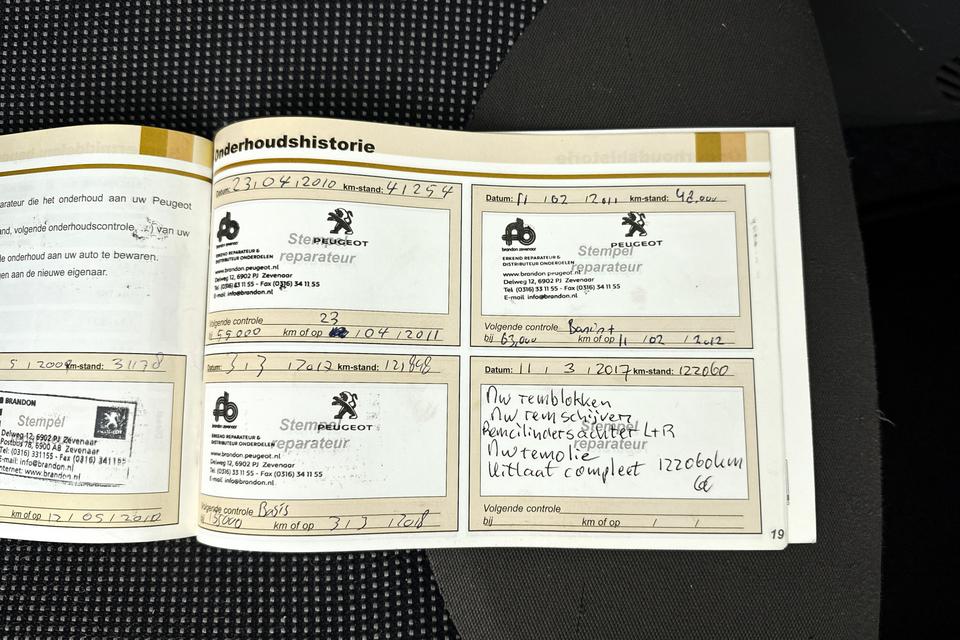 arateur die het onderhoud aan uw Peugeot
and, volgende onderhoudscontrole, van uw
le onderhoud aan uw auto te bewaren.
gen aan de nieuwe eigenaar.
km-stand: 31178
BRANDON
Stempel
Delweg 12, 6902 PJ Zevenaar
Postbus 78, 6900 AB Zevenaar
Tel: (0316) 331155 - Fax (0316) 341155
E-mail: info@brandon.nl
Internet: www.brandon.nl
km of op 12 / 05 / 2010
Onderhoudshistorie
Datum: 23 / 04 / 2010 km-stand: 41254
brandon zevenaar
PEUGEOT
Stempel
reparateur
ERKEND REPARATEUR &
DISTRIBUTEUR ONDERDELEN
www.brandon.peugeot.nl
Delweg 12, 6902 PJ Zevenaar
Tel (0316) 33 11 55 - Fax (0316) 34 11 55
E-mail info@brandon.nl
Volgende controle 23
bij 59.000 km of op / 04 / 2011
Datum: 11 / 02 / 2011 km-stand: 48,000
brandon zevenaar
PEUGEOT
Stempel
reparateur
ERKEND REPARATEUR &
DISTRIBUTEUR ONDERDELEN
www.brandon.peugeot.nl
Delweg 12, 6902 PJ Zevenaar
Tel (0316) 33 11 55 - Fax (0316) 34 11 55
E-mail info@brandon.nl
Volgende controle Basis+
bij 63,000 km of op 11 / 02 / 2012
Datum: 3 / 3 / 2017 km-stand: 121,898
brandon zevenaar
PEUGEOT
Stempel
reparateur
ERKEND REPARATEUR &
DISTRIBUTEUR ONDERDELEN
www.brandon.peugeot.nl
Delweg 12, 6902 PJ Zevenaar
Tel (0316) 33 11 55 - Fax (0316) 34 11 55
E-mail info@brandon.nl
Volgende controle Basis
km of op 3 / 3 / 2018
Datum: 11 / 3 / 2017 km-stand: 122060
Nw remblokken
Nw remschijven
Remcilinders achter L+R
Nw remolie
Uitlaat compleet 122060km
Stempel
reparateur
Volgende controle
bij km of op / /
19